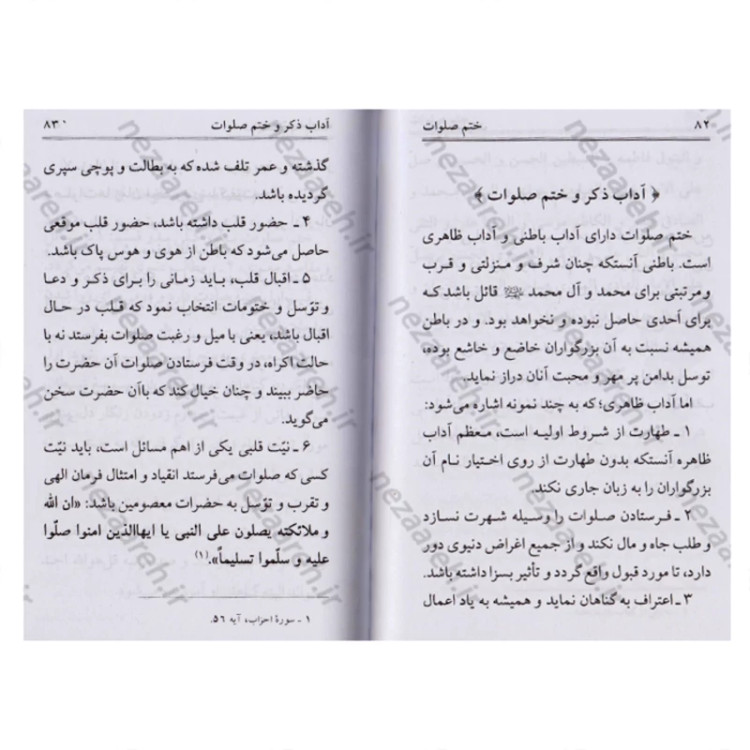 ۸۲ ختم صلوات
﴿ آداب ذکر و ختم صلوات ﴾
ختم صلوات دارای آداب باطنی و آداب ظاهری
است. باطنی آنستکه چنان شرف و منزلتی و قرب
ومرتبتی برای محمد و آل محمد ﷺ قائل باشد که
برای اَحدی حاصل نبوده و نخواهد بود. و در باطن
همیشه نسبت به آن بزرگواران خاضع و خاشع بوده،
توسل بدامن پر مهر و محبت آنان دراز نماید.
اما آداب ظاهری؛ که به چند نمونه اشاره می‌شود:
۱ ـ طهارت از شروط اولیه است، معظم آداب
ظاهره آنستکه بدون طهارت از روی اختیار نام آن
بزرگواران را به زبان جاری نکند.
۲ ـ فرستادن صلوات را وسیله شهرت نسازد
و طلب جاه و مال نکند و از جمیع اغراض دنیوی دور
دارد، تا مورد قبول واقع گردد و تأثیر بسزا داشته باشد.
۳ ـ اعتراف به گناهان نماید و همیشه به یاد اعمال
آداب ذکر و ختم صلوات ۸۳
گذشته و عمر تلف شده که به بطالت و پوچی سپری
گردیده باشد.
۴ ـ حضور قلب داشته باشد، حضور قلب موقعی
حاصل می‌شود که باطن از هوی و هوس پاک باشد.
۵ ـ اقبال قلب، باید زمانی را برای ذکر و دعا
و توّسل و ختومات انتخاب نمود که قلب در حال
اقبال باشد، یعنی با میل و رغبت صلوات بفرستد نه با
حالت اکراه، در وقت فرستادن صلوات آن حضرت را
حاضر ببیند و چنان خیال کند که باآن حضرت سخن
می‌گوید.
۶ ـ نیّت قلبی یکی از اهم مسائل است، باید نیّت
کسی که صلوات می‌فرستد انقیاد و امتثال فرمان الهی
و تقرب و توّسل به حضرات معصومین باشد: «ان الله
و ملائکته یصلون علی النبی یا ایهاالذین امنوا صلّوا
علیه و سلّموا تسلیماً».(۱)
۱ ـ سورهٔ احزاب، آیه ۵۶.
nezaareh.ir
nezaareh.ir
nezaareh.ir
nezaareh.ir
nezaareh.ir
nezaareh.ir